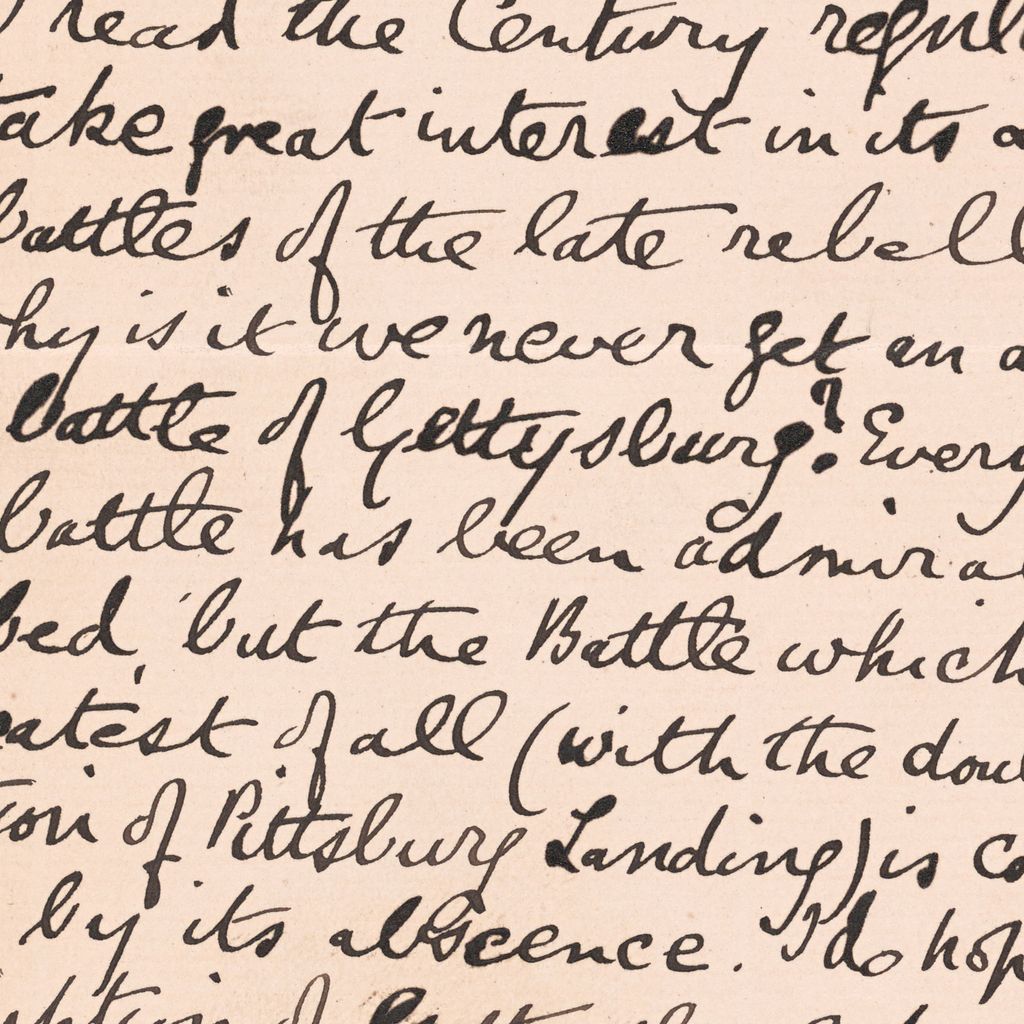 I read the Century regul
take great interest in its a
battles of the late rebell
why is it we never get an a
battle of Gettysburg? Every
battle has been admirab
bed, but the Battle which
eatest of all (with the dou
tion of Pittsburg Landing) is co
by its abscence. I do hop
ption of